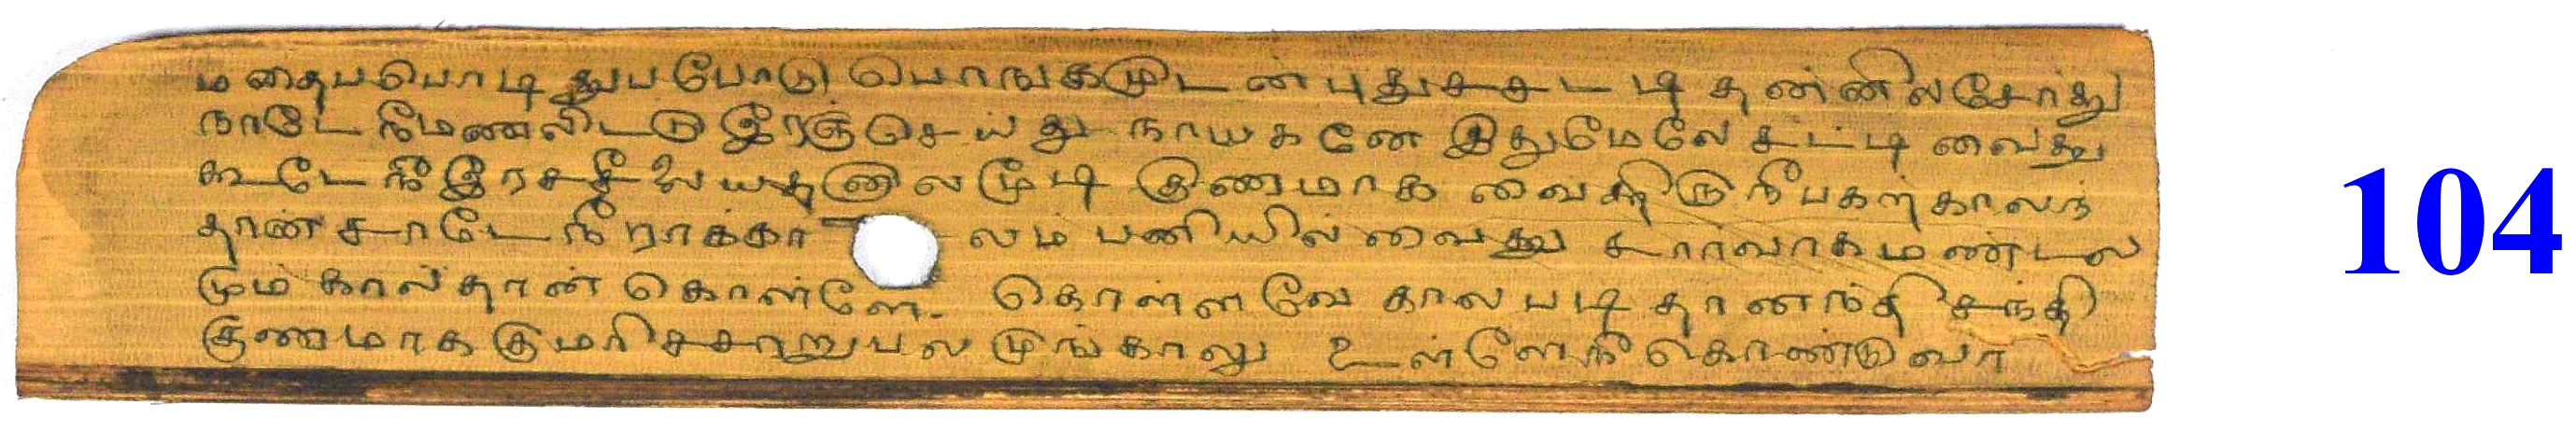 மதைபபொடி துபபோடு பொஙகமுடன் புதுசசடடி தன்னிலசேர்து
நாடே நீமணலிடடு இரஞ் செய்து நாயகனே இதுமேலே சட்டி வைத்து 104
கூடே நீ இரசசீலையதனுலமூடி குணமாக வைத்திரு நீ பகற்காலந்
தான் சாடே நீ ராக்கா லம் பனியில் வைத்து சாா்வாகமண்டல
மும் கால்தான் கொள்ளே- கொள்ளவே காலபடி தானந்தி சந்தி
குணமாக குமரிசசாறு பலமுங்காலு உள்ளேநீ கொண்டுவா